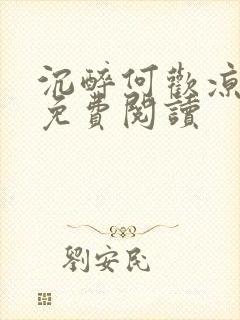 沉醉何歡涼
免費閱讀
劉安民